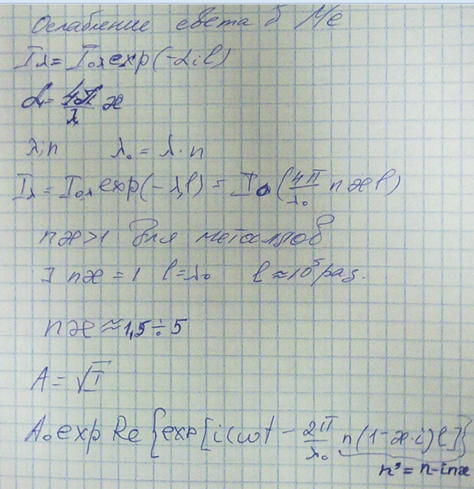 Ослабление света в Ме
Iλ = I₀λ exp(-αλl)
αλ = 4π/λ æ
λ; n    λ₀ = λ·n
Iλ = I₀λ exp(-αλl) = I₀(4π/λ₀ n æ l)
næ>1 для металлов
] næ = 1  l=λ₀  l≈10⁵ раз.
næ ≈ 1,5÷5
A = √I
A₀ exp Re{exp[i(ωt - 2π/λ₀ n(1-æi)l]}
n' = n-inæ